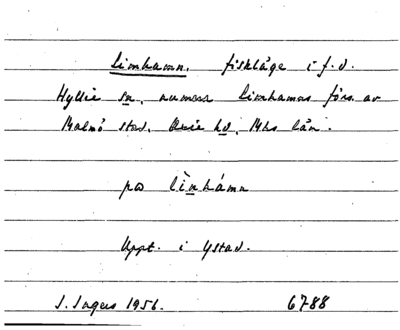 Limhamn, fiskläge i f.d.
Hyllie sn, numera Limhamns förs. av
Malmö stad, Oxie hd, Mhs län.
på lìnhámn
Uppt. i Ystad.
J. Ingers 1956. 6788